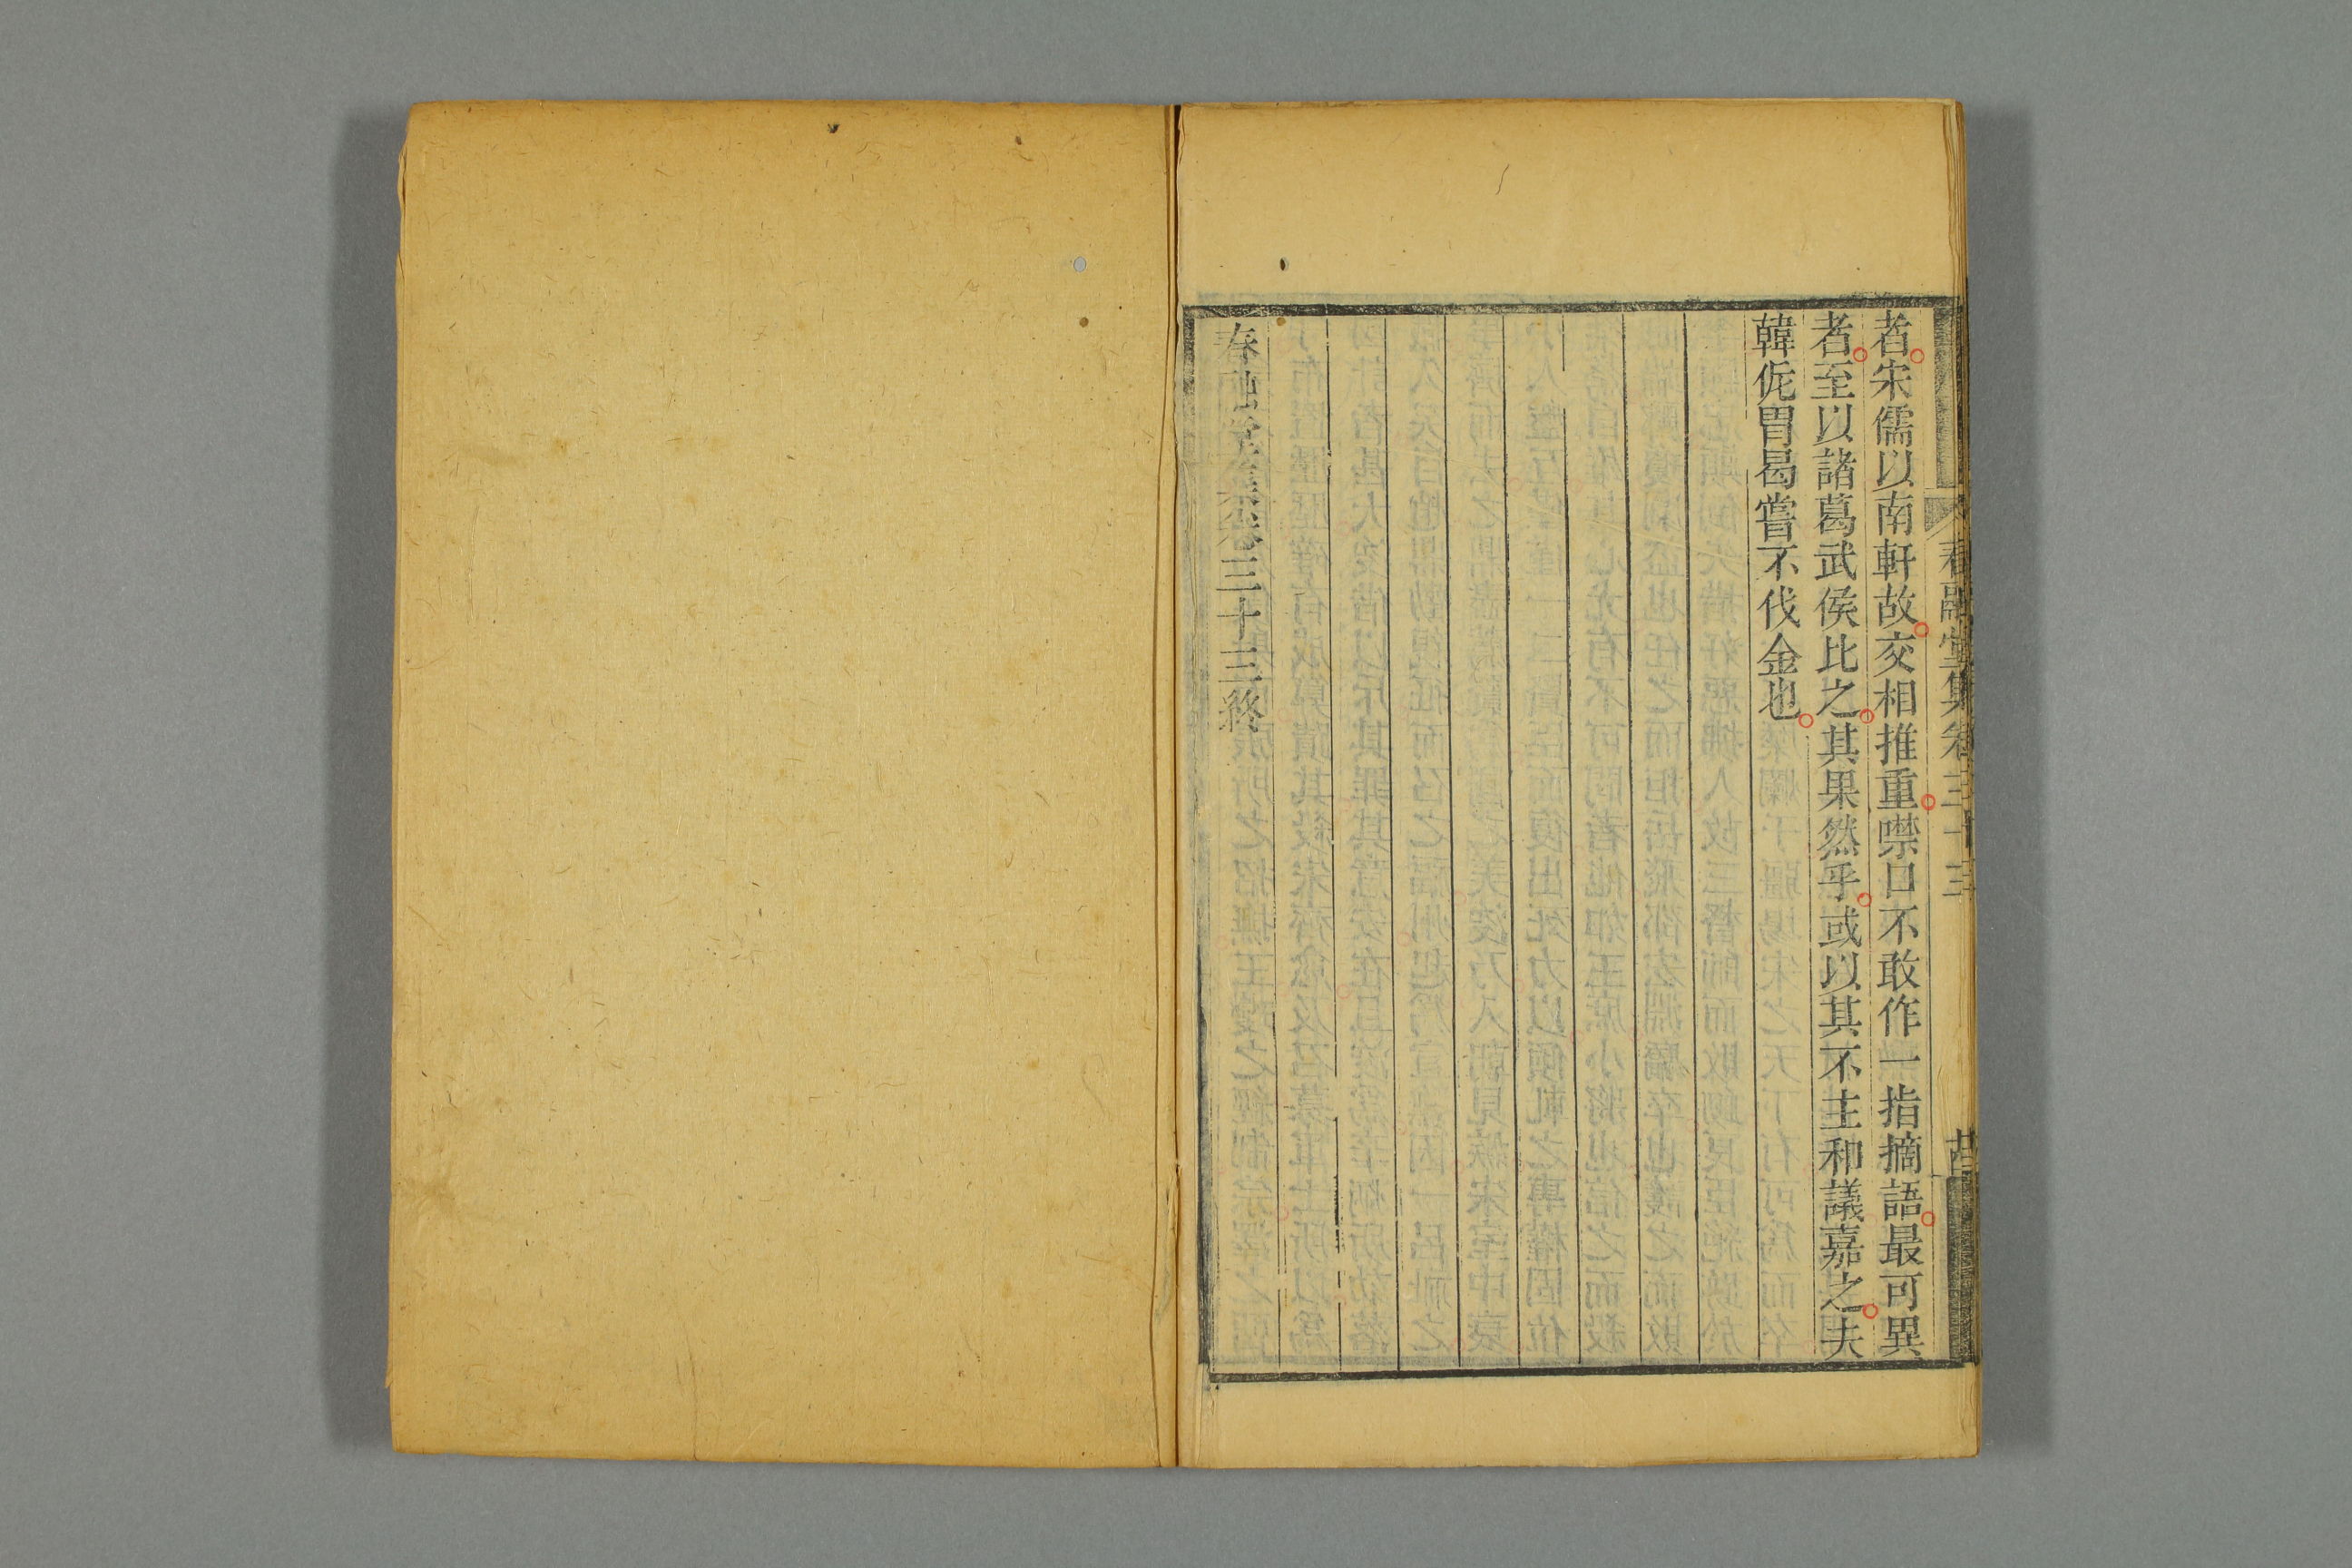 春融堂集卷三十三
者宋儒以南軒故交相推重噤口不敢作一指摘語最可異
者至以諸葛武侯比之其果然乎或以其不主和議嘉之夫
韓侂胄曷嘗不伐金也
春融堂集卷三十三終